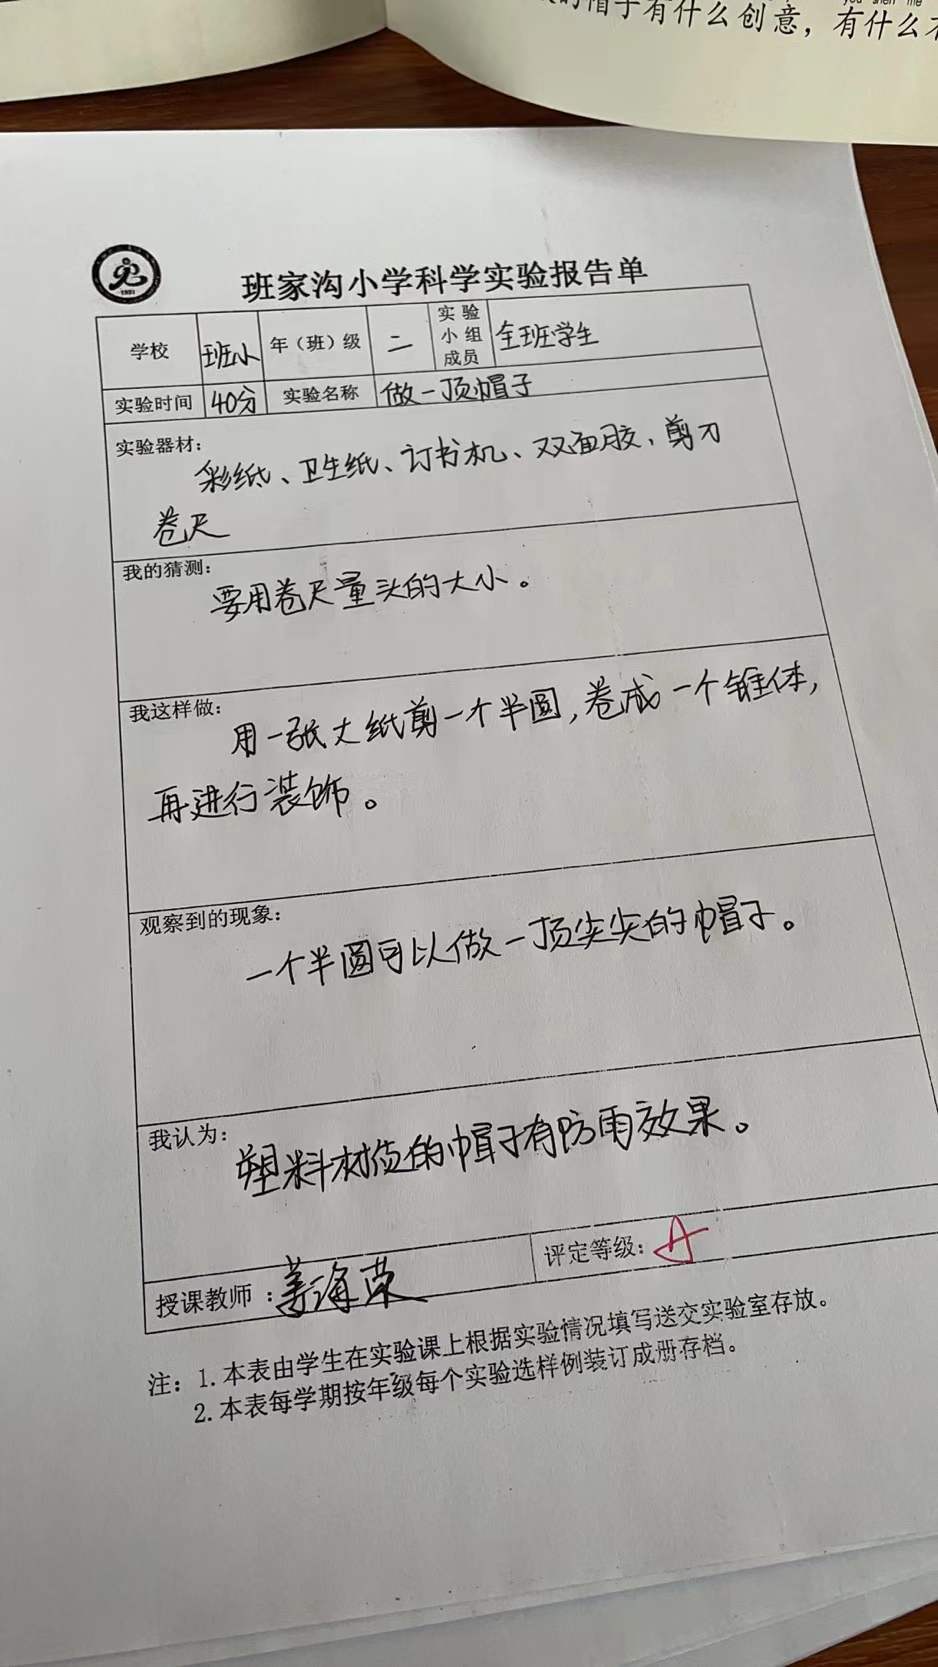 的帽子有什么创意，有什么
班家沟小学科学实验报告单
学校 班小 年（班）级 二 实验小组成员 全班学生
实验时间 40分 实验名称 做一顶帽子
实验器材：
彩纸、卫生纸、订书机、双面胶、剪刀
卷尺
我的猜测：
要用卷尺量头的大小。
我这样做：
用一张大纸剪一个半圆，卷成一个锥体，
再进行装饰。
观察到的现象：
一个半圆可以做一顶尖尖的帽子。
我认为：
塑料材质的帽子有防雨效果。
授课教师： 评定等级：A
注：1.本表由学生在实验课上根据实验情况填写送交实验室存放。
2.本表每学期按年级每个实验选样例装订成册存档。